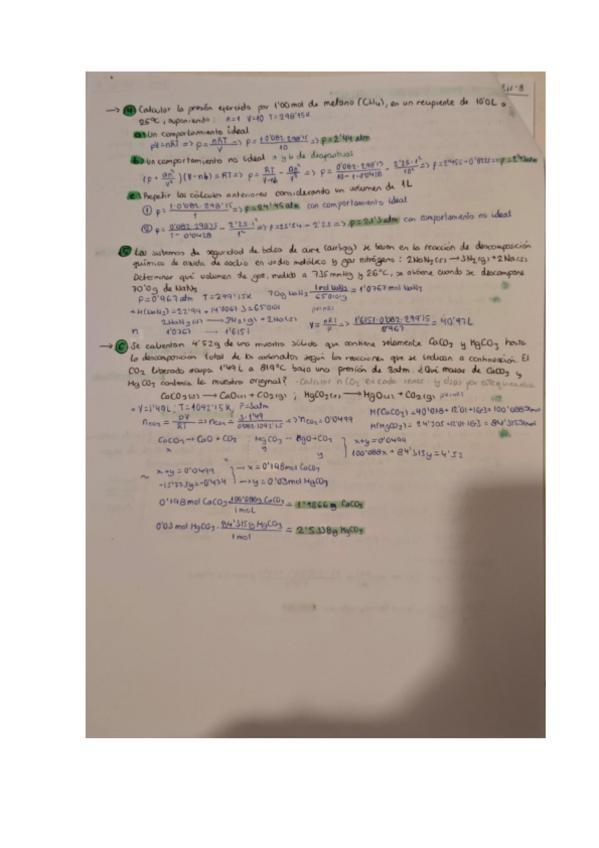 → 4 Calcular la presión ejercida por 1'00 mol de metano (CH4), en un recipiente de 10'0L a
25ºC, suponiendo: n=1 V=10 T=298'15K
a) Un comportamiento ideal
pV=nRT => p=nRT/V => p=1·0'082·298'15/10 => p=2'44 atm
b) Un comportamiento no ideal → a y b de diapositivas
(p+an²/V²)(V-nb)=RT => p=RT/V-nb - an²/V² => p=
c) Repetir los cálculos anteriores considerando un volumen de 1L
① p=1·0'082·298'15/1 => p=24'45 atm con comportamiento ideal
② p=0'082·298'15/1-0'0428 - 2'25·1²/1² => p= - 2'25 => p=23'3 atm con comportamiento no ideal
5 Los sistemas de seguridad de bolsa de aire (airbag) se basan en la reacción de descomposición
química de azida de sodio en sodio metálico y gas nitrógeno: 2NaN3(s) → 3N2(g) + 2Na(s)
Determinar qué volumen de gas, medido a 735 mmHg y 26ºC, se obtiene cuando se descompone
70'0g de NaN3
P=0'967 atm T=299'15K 70g NaN3 · 1mol NaN3/65'0101g = 1'0767 mol NaN3
2NaN3(s) → 3N2(g) + 2Na(s)
n 1'0767 → 1'6151
V=nRT/P => 1'6151·0'082·299'15/0'967 = 40'97L
→ 6 Se calientan 4'52g de una muestra sólida que contiene solamente CaCO3 y MgCO3 hasta
la descomposición total de los carbonatos según las reacciones que se indican a continuación. El
CO2 liberado ocupa 1'49L a 819ºC bajo una presión de 3atm. ¿Qué masa de CaCO3 y
MgCO3 contenía la muestra original?
CaCO3(s) → CaO(s) + CO2(g) ; MgCO3(s) → MgO(s) + CO2(g)
→ V=1'49L; T=1092'15K, P=3atm
nCO2=PV/RT => nCO2=3·1'49/0'082·1092'15 => nCO2=0'0499
M(CaCO3)=40'078+12'01+16·3=100'088g/mol
M(MgCO3)=24'305+12'01+16·3=84'315g/mol
CaCO3 → CaO + CO2 MgCO3 → MgO + CO2
x x y y
x+y=0'0499
100'088x + 84'315y = 4'52
x+y=0'0499 → x=0'198mol CaCO3
→ y=0'03mol MgCO3
0'198mol CaCO3 · 100'088g CaCO3/1mol = 1'9866g CaCO3
0'03mol MgCO3 · 84'315g MgCO3/1mol = 2'5338g MgCO3